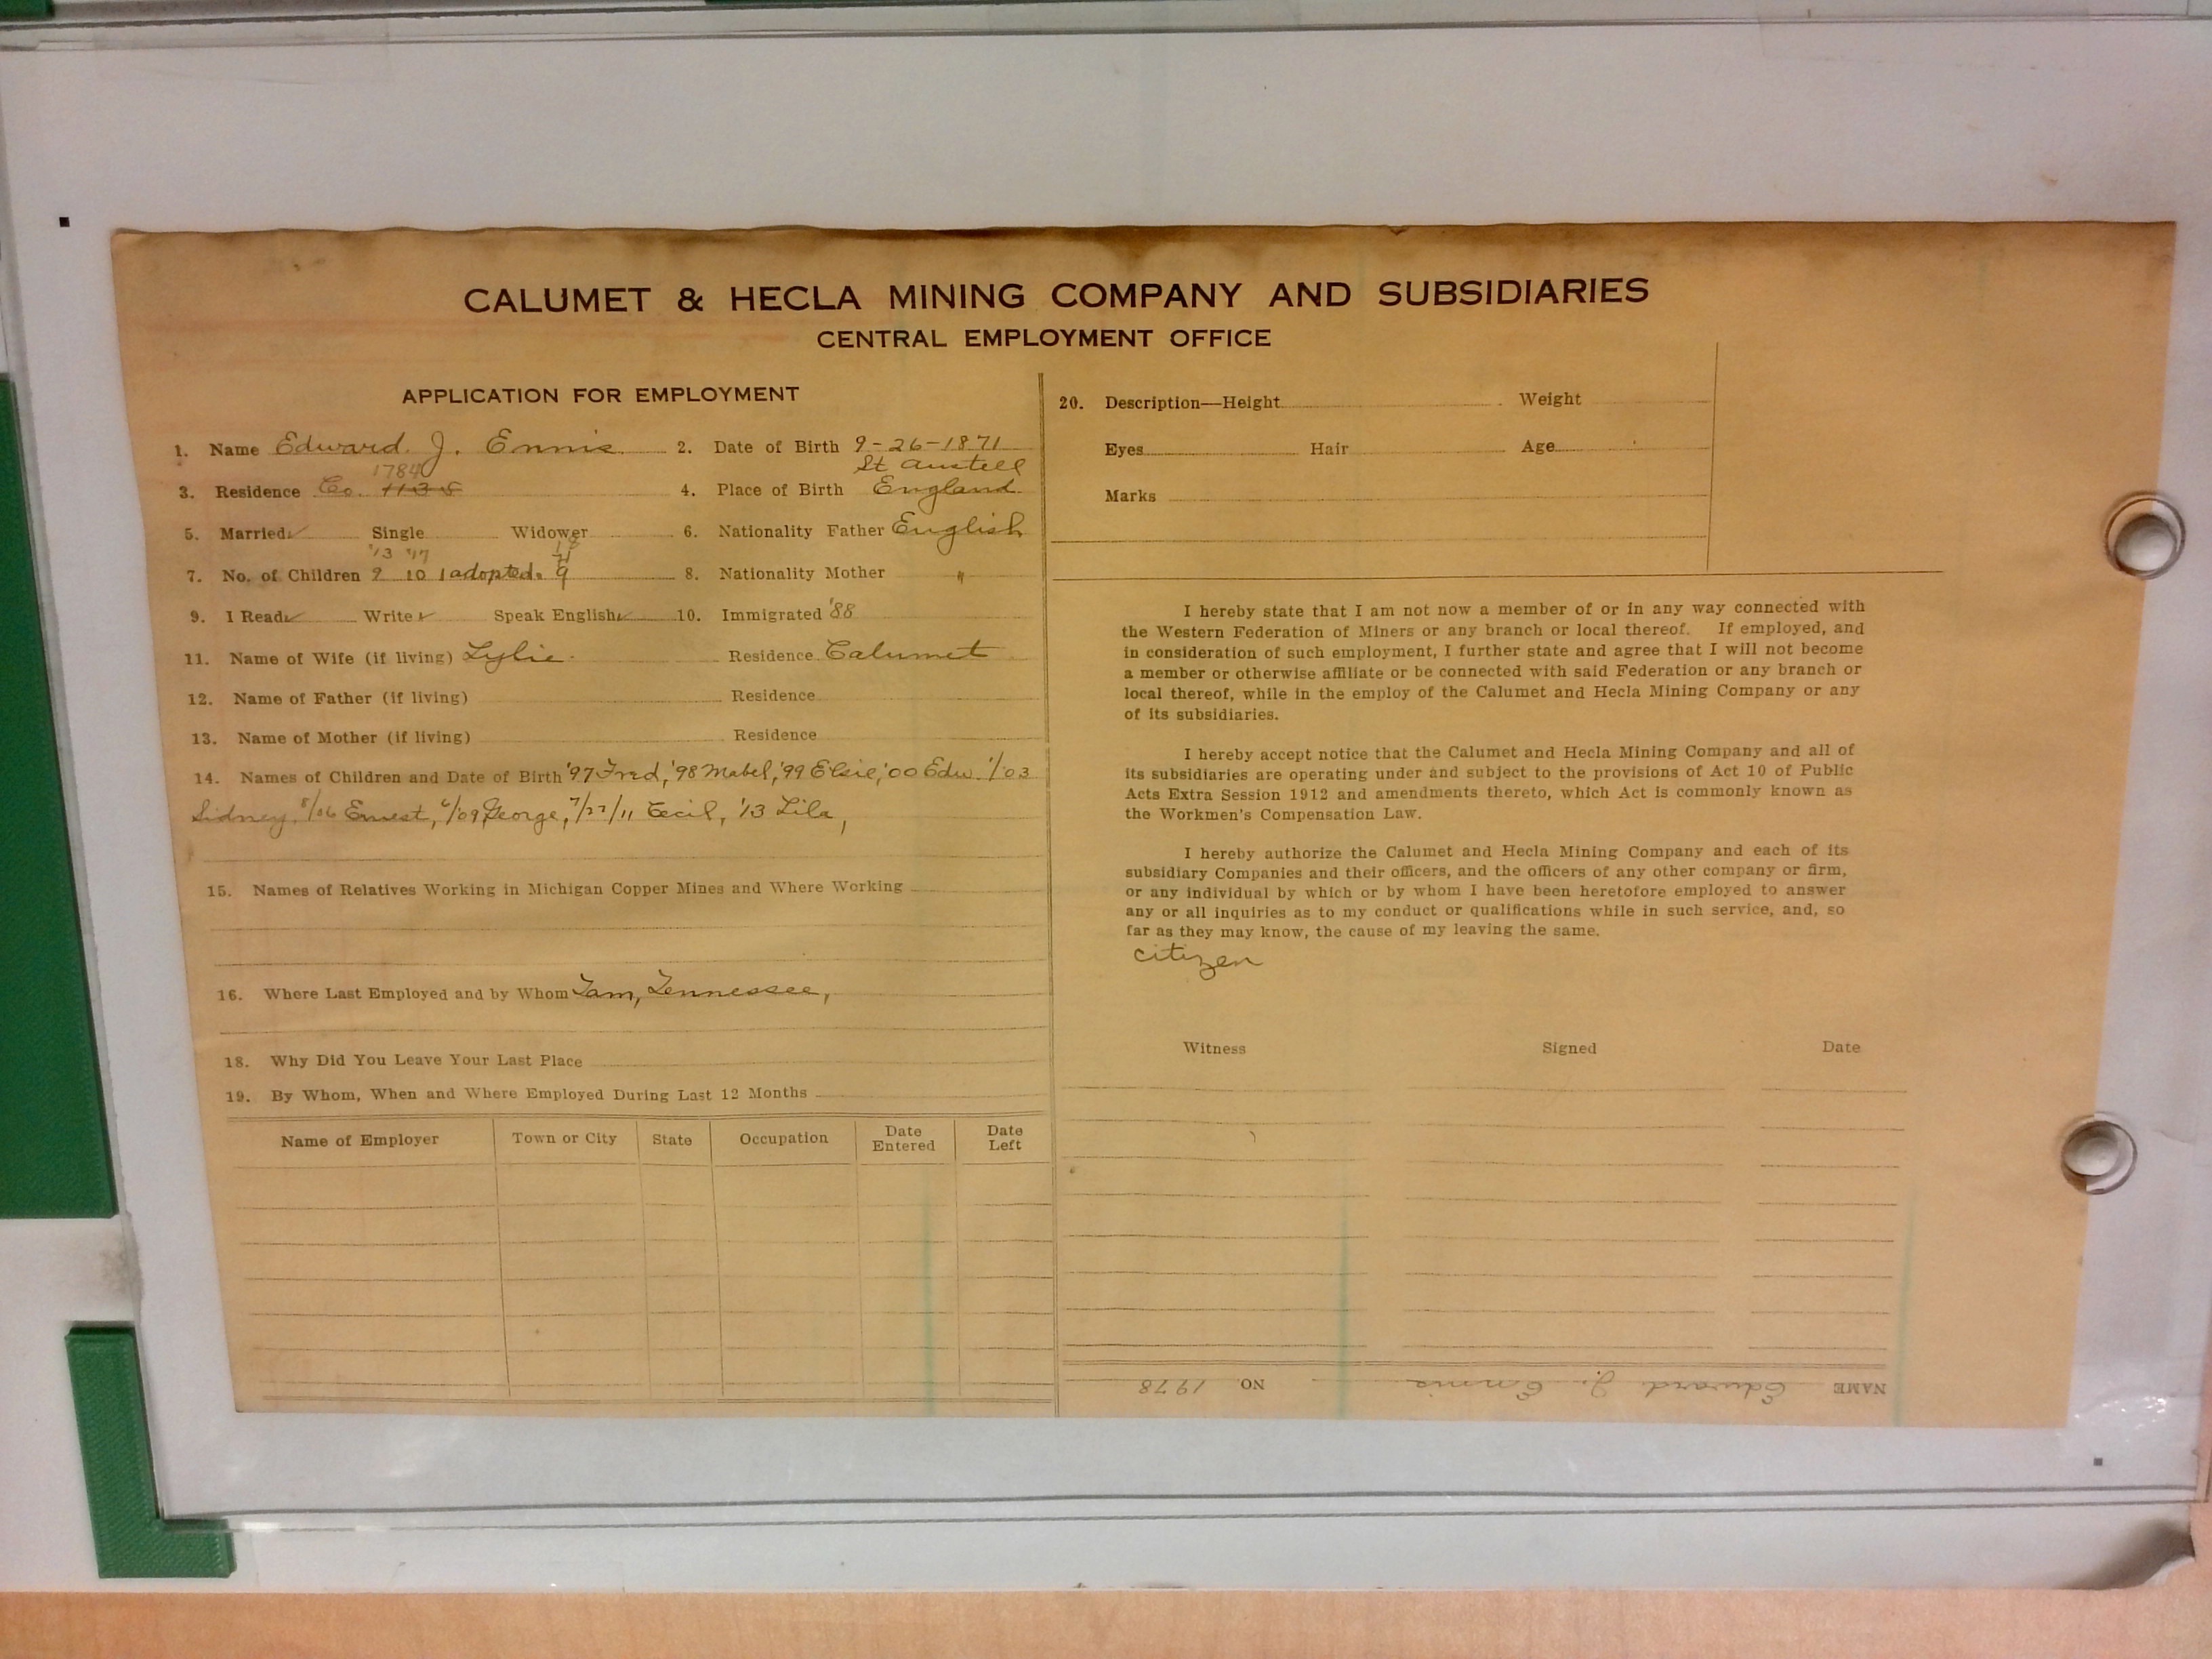 CALUMET & HECLA MINING COMPANY AND SUBSIDIARIES
CENTRAL EMPLOYMENT OFFICE
APPLICATION FOR EMPLOYMENT
1. Name Edward J. Ennis 2. Date of Birth 9-26-1871
1784 St Austell
3. Residence Co. 1135 4. Place of Birth England
5. Married ✓ Single Widower 6. Nationality Father English
'13 '17
7. No. of Children 9 10 1 adopted. 9 8. Nationality Mother "
9. I Read ✓ Write ✓ Speak English ✓ 10. Immigrated '88
11. Name of Wife (if living) Lylie Residence Calumet
12. Name of Father (if living) Residence
13. Name of Mother (if living) Residence
14. Names of Children and Date of Birth '97 Fred, '98 Mabel, '99 Elsie, '00 Edw. '/03
Sidney, 8/06 Ernest, 6/09 George, 7/27/11 Cecil, '13 Lila,
15. Names of Relatives Working in Michigan Copper Mines and Where Working
16. Where Last Employed and by Whom Tam, Tennessee,
18. Why Did You Leave Your Last Place
19. By Whom, When and Where Employed During Last 12 Months
Name of Employer Town or City State Occupation Date Entered Date Left
20. Description—Height Weight
Eyes Hair Age
Marks
I hereby state that I am not now a member of or in any way connected with
the Western Federation of Miners or any branch or local thereof. If employed, and
in consideration of such employment, I further state and agree that I will not become
a member or otherwise affiliate or be connected with said Federation or any branch or
local thereof, while in the employ of the Calumet and Hecla Mining Company or any
of its subsidiaries.
I hereby accept notice that the Calumet and Hecla Mining Company and all of
its subsidiaries are operating under and subject to the provisions of Act 10 of Public
Acts Extra Session 1912 and amendments thereto, which Act is commonly known as
the Workmen's Compensation Law.
I hereby authorize the Calumet and Hecla Mining Company and each of its
subsidiary Companies and their officers, and the officers of any other company or firm,
or any individual by which or by whom I have been heretofore employed to answer
any or all inquiries as to my conduct or qualifications while in such service, and, so
far as they may know, the cause of my leaving the same.
citizen
Witness Signed Date
NAME Edward J. Ennis NO. 1978